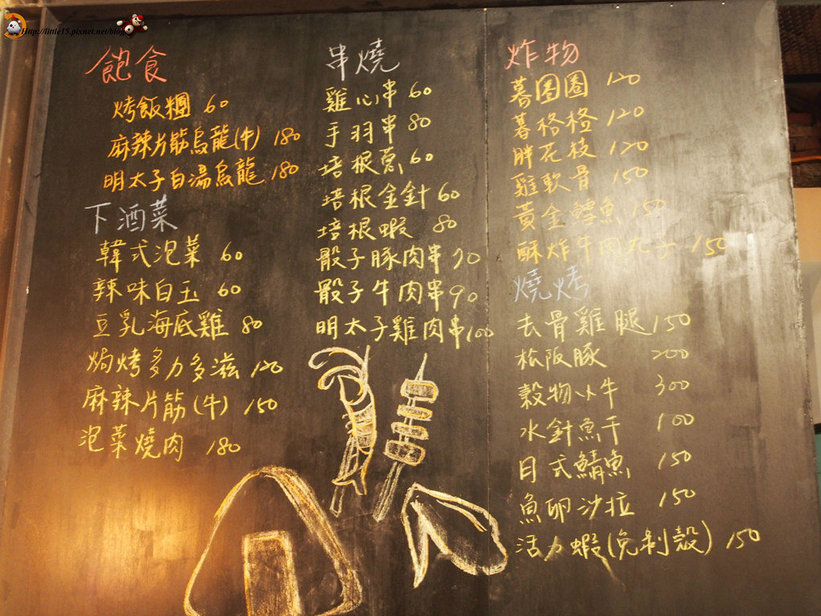 Http://little15.pixnet.net/blog
飽食
烤飯糰 60
麻辣片筋烏龍(牛) 180
明太子白湯烏龍 180
下酒菜
韓式泡菜 60
辣味白玉 60
豆乳海底雞 80
焗烤多力多滋 120
麻辣片筋(牛) 150
泡菜燒肉 180
串燒
雞心串 60
手羽串 80
培根蔥 60
培根金針 60
培根蝦 80
骰子豚肉串 70
骰子牛肉串 90
明太子雞肉串 100
炸物
暮圈圈 120
暮格格 120
胖花枝 120
雞軟骨 150
黃金鱈魚 150
酥炸牛肉丸子 150
燒烤
去骨雞腿 150
松阪豚 200
穀物小牛 300
水針魚干 100
日式鯖魚 150
魚卵沙拉 150
活力蝦(免剝殼) 150